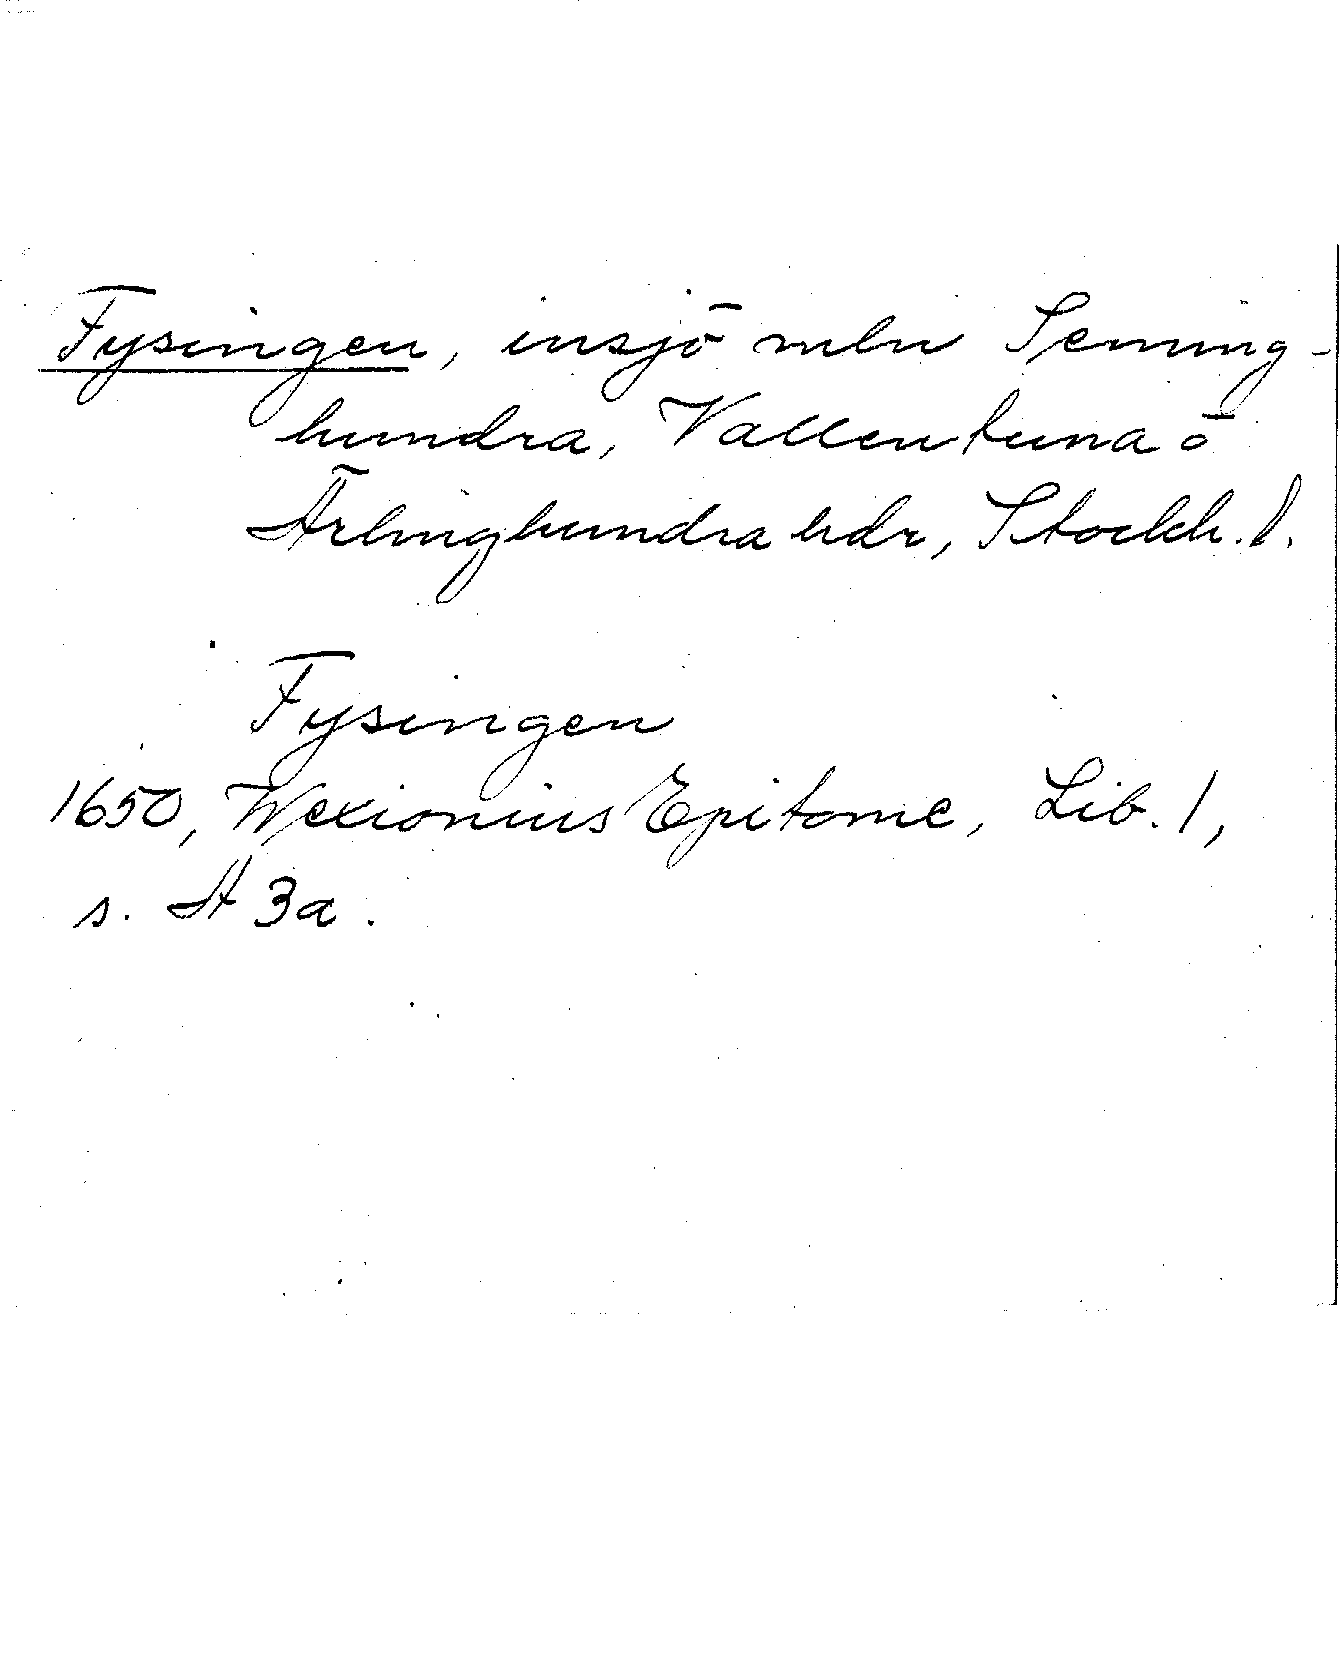 Fysingen, insjö mln Seming-
hundra, Vallentuna o
Ärlinghundra hdr, Stockh. l.
Fysingen
1650, Wexionius Epitome, Lib. 1,
s. A 3a.